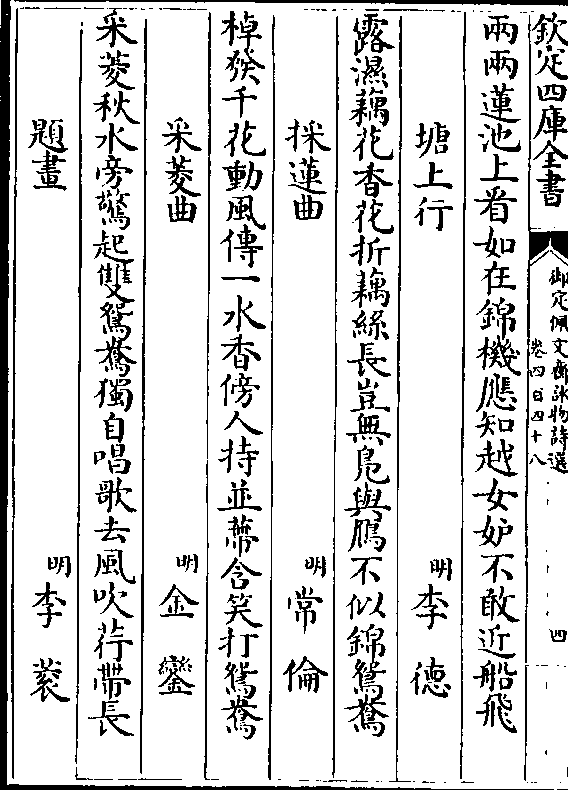 欽定四庫全書
御定佩文齋詠物詩選
卷四百四十八
四
兩兩蓮池上看如在錦機應知越女妒不敢近船飛
塘上行
明李德
露濕藕花香花折藕絲長豈無鳧與鴈不似錦鴛鴦
採蓮曲
明常倫
棹發千花動風傳一水香傍人持並蔕含笑打鴛鴦
采菱曲
明金鑾
采菱秋水旁驚起雙鴛鴦獨自唱歌去風吹荇帶長
題畫
明李裘